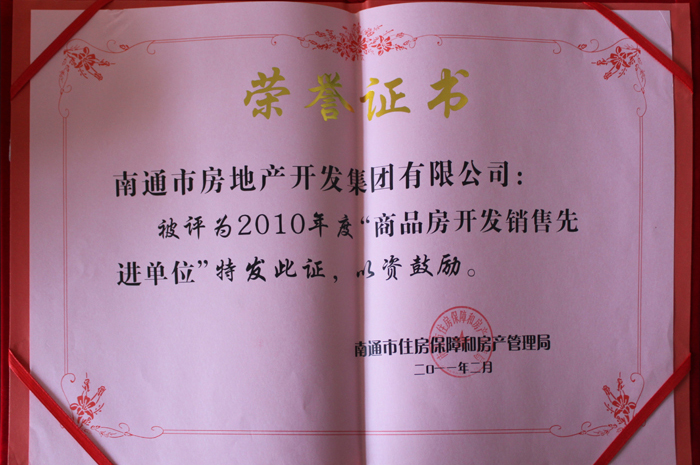 荣誉证书
南通市房地产开发集团有限公司：
被评为2010年度“商品房开发销售先
进单位”特发此证，以资鼓励。
南通市住房保障和房产管理局
二〇一一年二月